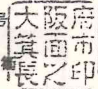 号
大阪府
箕面市
長之印